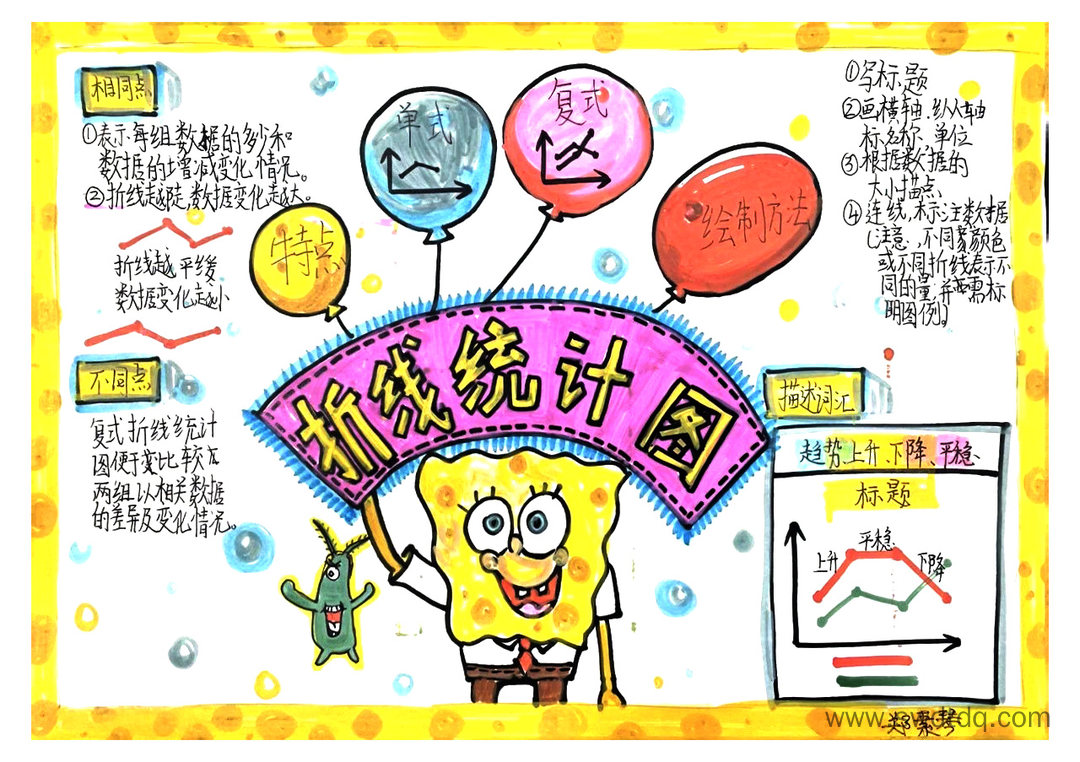 相同点
①表示每组数据的多少和
数据的增减变化情况。
②折线越陡,数据变化越大。
折线越平缓
数据变化越小
不同点
复式折线统计
图便于比较
两组以相关数据
的差异及变化情况。
特点
单式
复式
绘制方法
折线统计图
①写标题
②画横轴、纵轴
标名称,单位
③根据数据的
大小描点
④连线,标注数据
(注意,不同颜色
或不同折线表示不
同的量,并需标
明图例。)
描述词汇
趋势上升、下降、平稳
标题
上升
平稳
下降